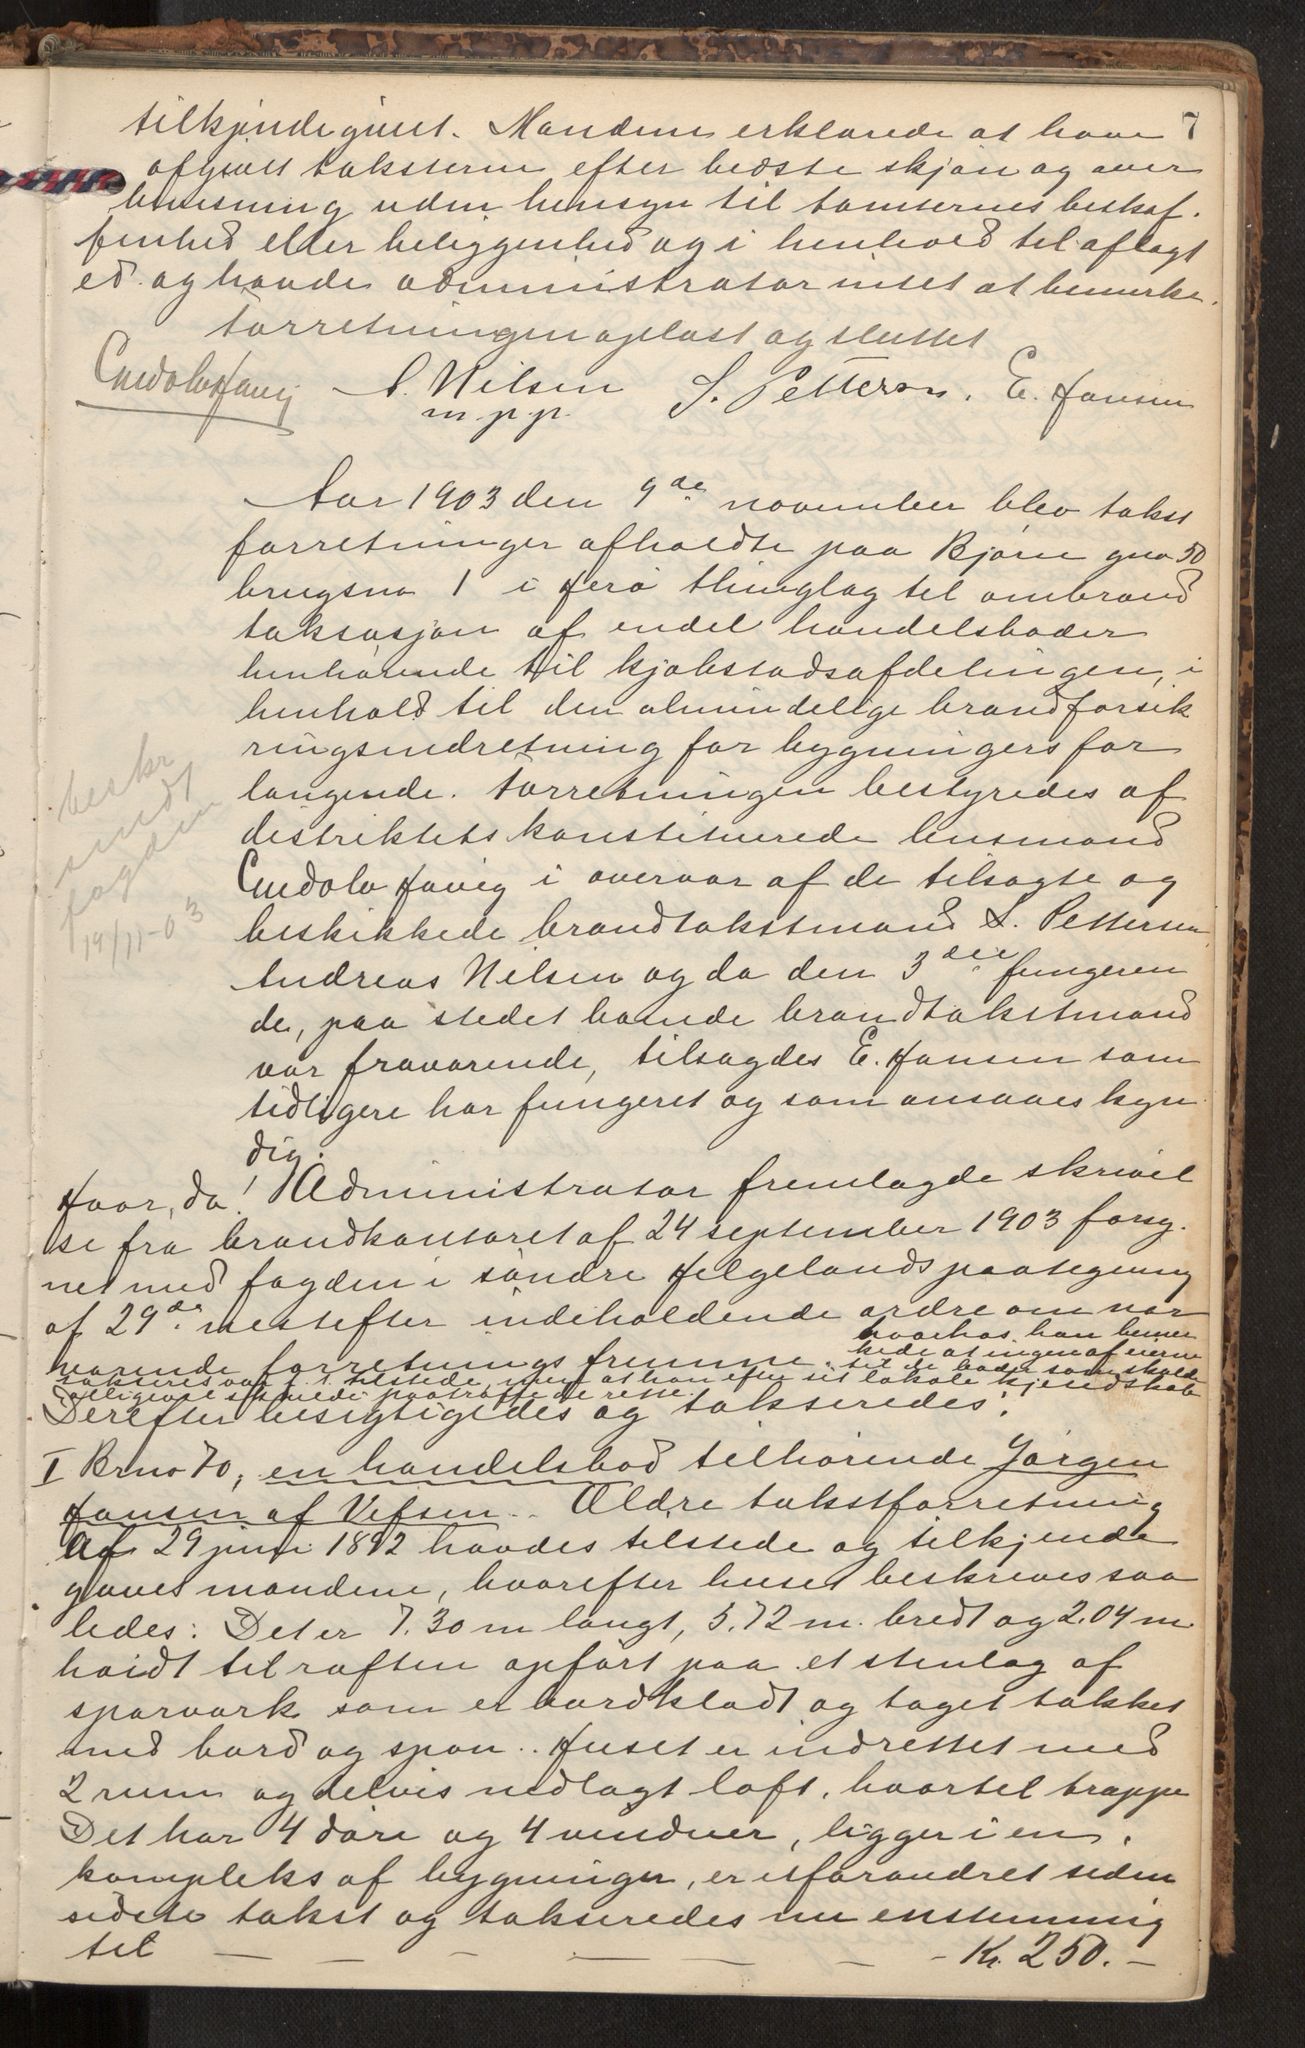 7
tilkjendegivet. Mændene erklærede at have
afgivet taksterne efter bedste skjøn og over
bevisning uden hensyn til tomternes beskaf-
fenhed eller beliggenhed og i henhold til aflagt
ed og havde administrator intet at bemerke.
Forretningen oplæst og sluttet
A. Nilsen S. Pettersen. E. Hansen
m.p.p.
Aar 1903 den 9de november blev takst
forretninger afholdte paa Bjørn gno 50
brugsno 1 i Herø thinglag til ombrand
taksasjon af endel handelsboder
henhørende til kjøbstadsafdelingen, i
henhold til den almindelige brandforsik
ringsindretning for bygningers for
langende. Forretningen bestyredes af
distriktets konstituerede lensmand
Havig i overvær af de tilsagte og
beskikkede brandtakstmænd S. Pettersen
Andreas Nilsen og da den 3die fungeren
de, paa stedet boende brandtakstmand
var fraværende, tilsagdes E. Hansen som
tidligere har fungeret og som ansaaes kyn
dig.
beskr
sendt
fogden
19/11-03
Hvor, da! Administrator fremlagde skrivel
se fra brandkontoret af 24 september 1903 forsy-
net med fogden i søndre Helgelands paategning
af 29de næstefter indeholdende ordre om nær
værende forretnings fremme. hvorhos han bemer
kede at ingen af eierne til de boder som skulde
takseres var tilstede, men at han efter sit lokale kjendskab
alligevel skulde paatræffe de rette.
Derefter besigtigedes og takseredes:
I Brno 70, en handelsbod tilhørende Jørgen
Hansen af Vefsen. Ældre takstforretning
af 29 juni 1892 havdes tilstede og tilkjende
gaves mændene, hvorefter huset beskrives saa
ledes: Det er 7.30 m langt, 5.72 m. bredt og 2.04 m
høidt til raften opført paa et stenlag af
sparværk som er bordklædt og taget tækket
med bord og spon. Huset er indrettet med
2 rum og delvis nedlagt loft, hvortil trappe
Det har 4 døre og 4 vinduer, ligger i en
kompleks af bygninger, er uforandret siden
sidste takst og takseredes nu enstemmig
til — — — — — Kr. 250.–